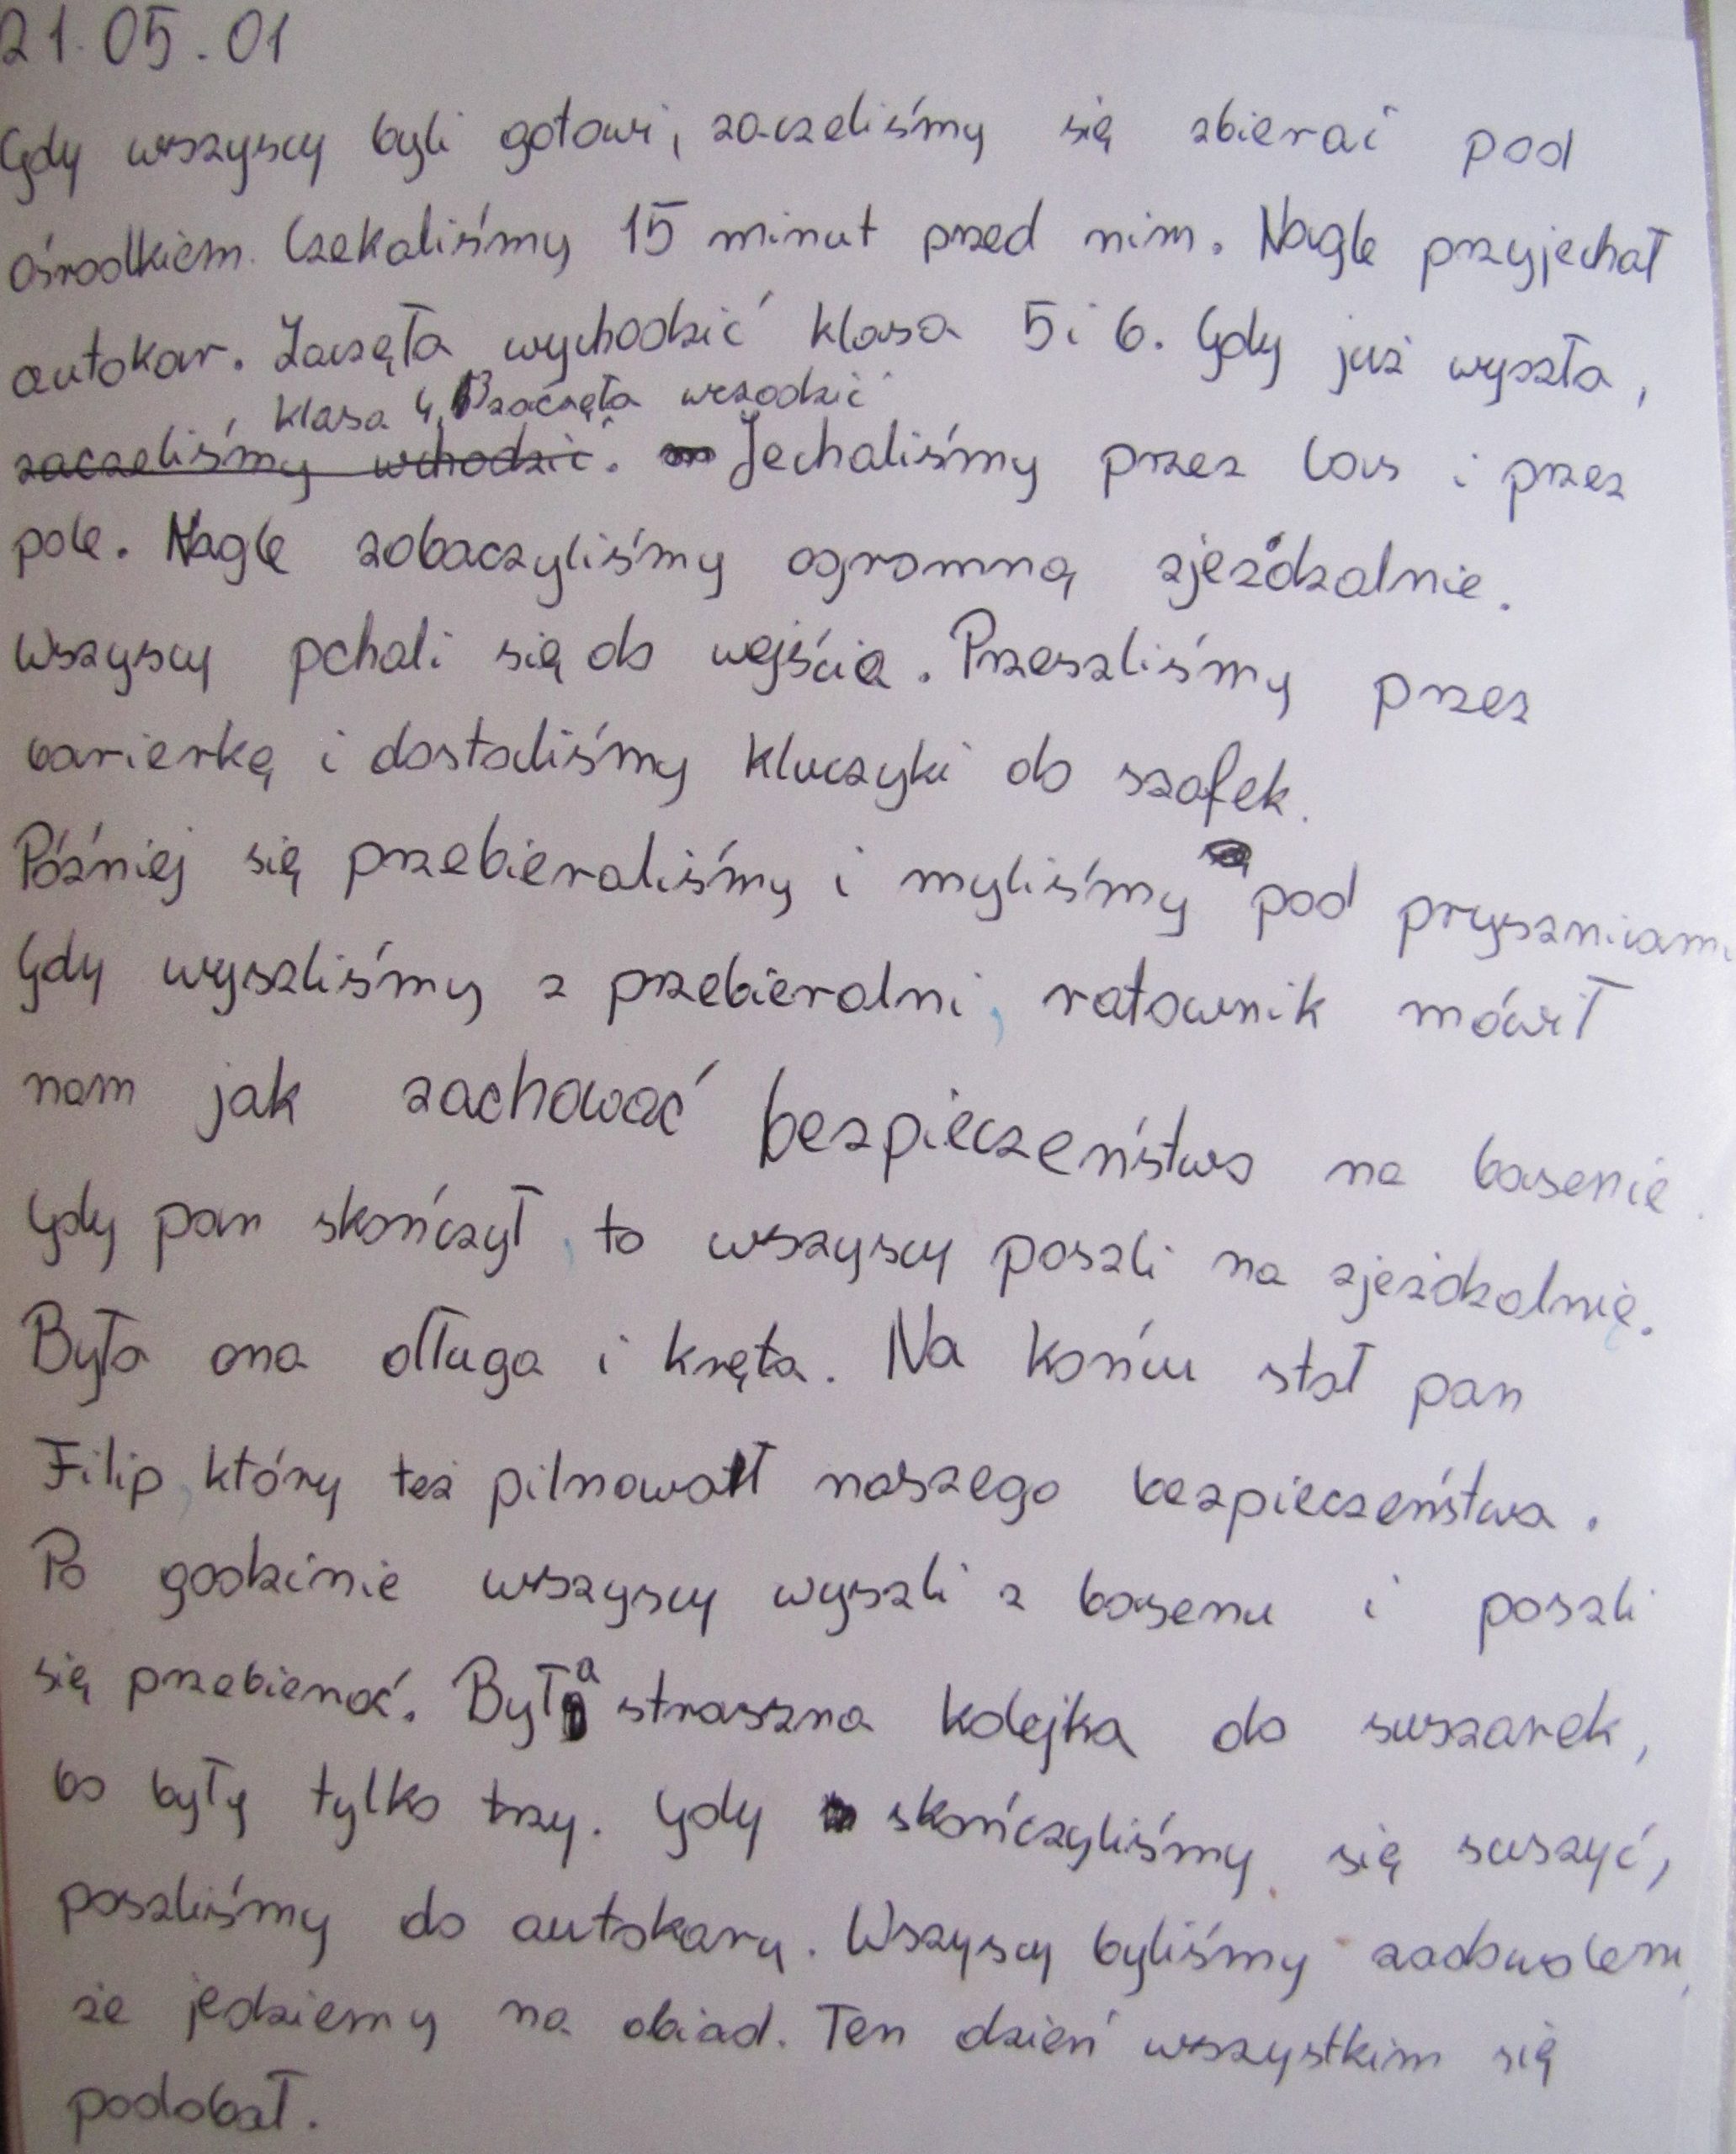 21.05.01
Gdy wszyscy byli gotowi, zaczeliśmy się zbierać pod
ośrodkiem. Czekaliśmy 15 minut przed nim. Nagle przyjechał
autokar. Zaczęła wychodzić klasa 5 i 6. Gdy już wyszła,
klasa 4 B zaczęła wchodzić
zaczeliśmy wchodzić. Jechaliśmy przez las i przez
pole. Nagle zobaczyliśmy ogromną zjeżdzalnie.
Wszyscy pchali się do wejścia. Przeszliśmy przez
barierkę i dostaliśmy kluczyki do szafek.
Później się przebieraliśmy i myliśmy pod prysznicami
Gdy wyszliśmy z przebieralni, ratownik mówił
nam jak zachować bezpieczeństwo na basenie.
Gdy pan skończył, to wszyscy poszli na zjeżdzalnię.
Była ona długa i kręta. Na końcu stał pan
Filip, który też pilnował naszego bezpieczeństwa.
Po godzinie wszyscy wyszli z basenu i poszli
się przebierać. Była straszna kolejka do suszarek,
bo były tylko trzy. Gdy skończyliśmy się suszyć,
poszliśmy do autokaru. Wszyscy byliśmy zadowoleni,
że jedziemy na obiad. Ten dzień wszystkim się
podobał.